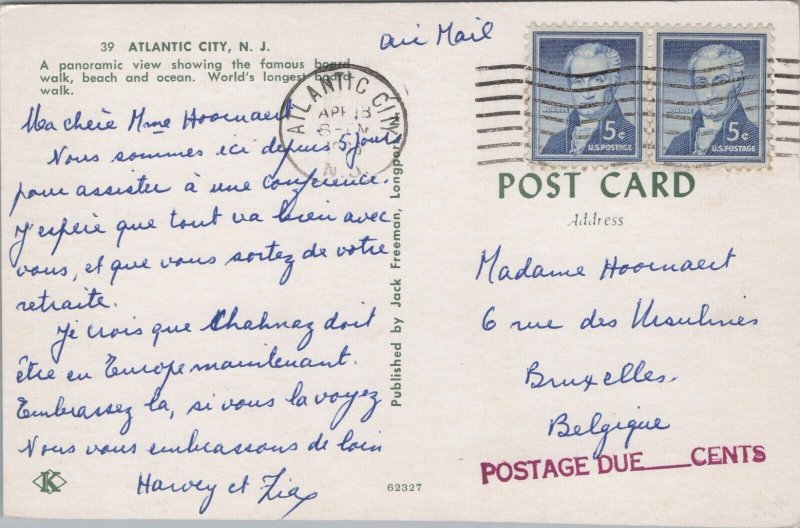 39 ATLANTIC CITY, N. J.
A panoramic view showing the famous board
walk, beach and ocean. World's longest board
walk.
Ma chère Mme Hoornaert
Nous sommes ici depuis 5 jours
pour assister à une conference.
J'espère que tout va bien avec
vous, et que vous sortez de votre
retraite.
Je crois que Chahnaz doit
être en Europe maintenant.
Embrassez la, si vous la voyez
Nous vous embrassons de loin
Harvey et Zia
K
Published by Jack Freeman, Longport, N.J.
62327
air Mail
ATLANTIC CITY
APR 18
N.J.
5¢
U.S. POSTAGE
5¢
U.S. POSTAGE
POST CARD
Address
Madame Hoornaert
6 rue des Ursulines
Bruxelles.
Belgique
POSTAGE DUE___CENTS